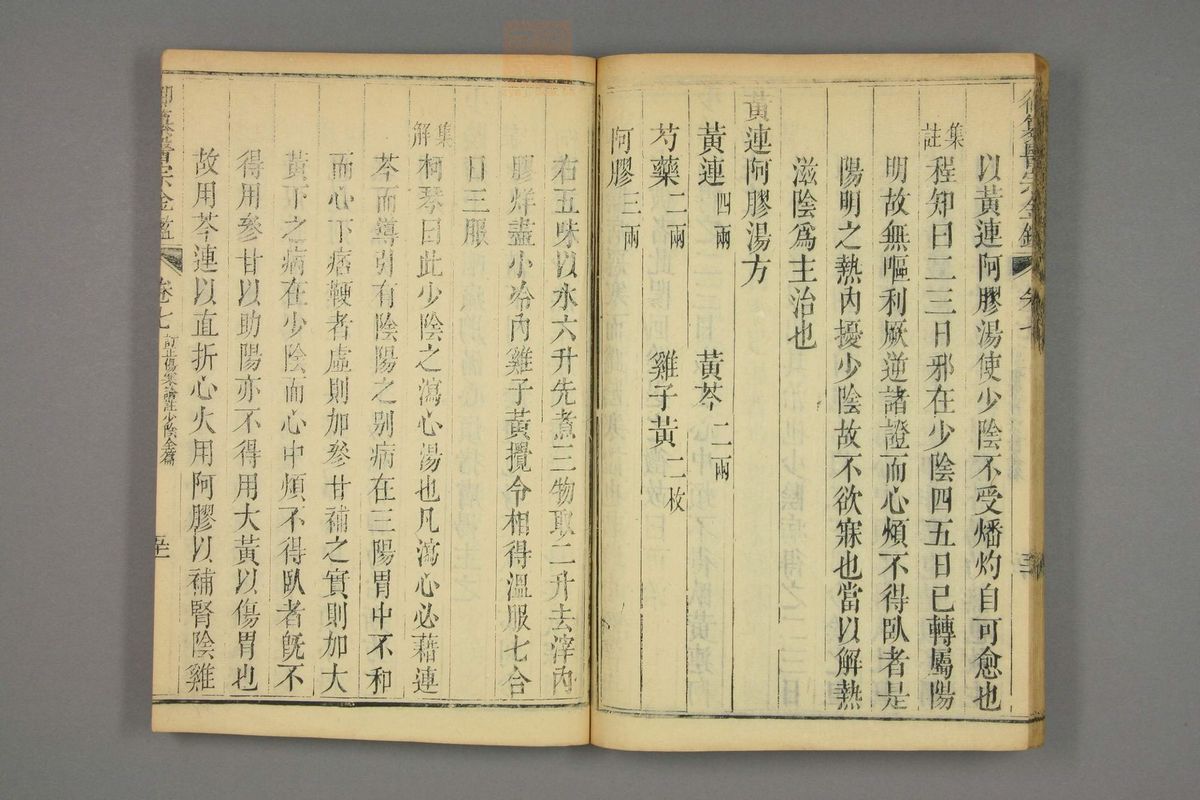 以黃連阿膠湯使少陰不受燔灼自可愈也
集註
程知曰二三日邪在少陰四五日已轉屬陽
明故無嘔利厥逆諸證而心煩不得臥者是
陽明之熱內擾少陰故不欲寐也當以解熱
滋陰為主治也
黃連阿膠湯方
黃連四兩 黃芩二兩
芍藥二兩 雞子黃二枚
阿膠三兩
右五味以水六升先煮三物取二升去滓內
膠烊盡小冷內雞子黃攪令相得溫服七合
日三服
集解
柯琴曰此少陰之瀉心湯也凡瀉心必藉連
芩而導引有陰陽之别病在三陽胃中不和
而心下痞鞕者虛則加參甘補之實則加大
黃下之病在少陰而心中煩不得臥者旣不
得用參甘以助陽亦不得用大黃以傷胃也
故用芩連以直折心火用阿膠以補腎陰雞
御纂醫宗金鑑 卷七 訂正傷寒論註少陰全篇